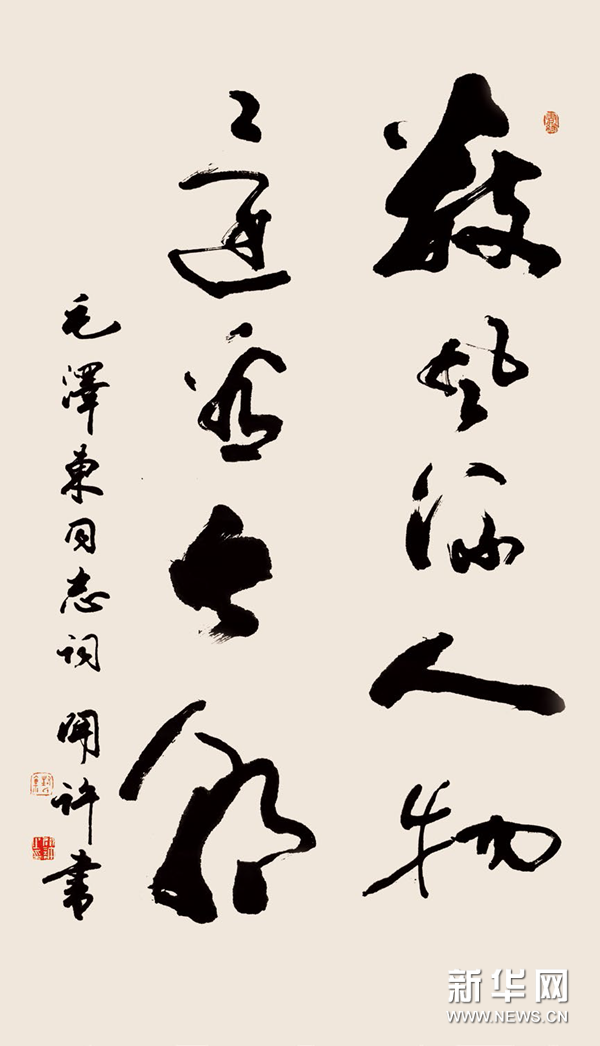 數風流人物
還看今朝
毛澤東同志詞 開許書
新华网
WWW.NEWS.CN